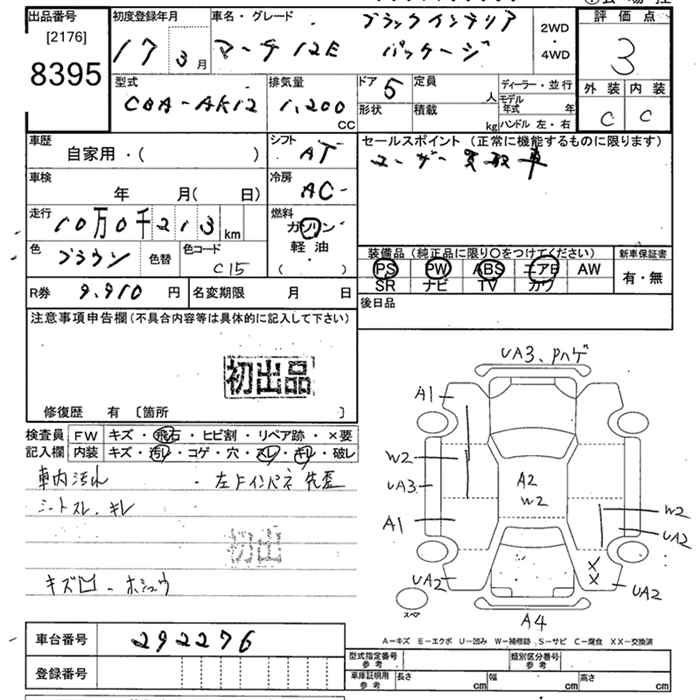 出品番号
[2176]
8395
初度登録年月
17 3月
車名・グレード
マーチ 12E
ブラックインテリア
パッケージ
2WD
・
4WD
評価点
3
外装 内装
C C
型式
CBA-AK12
排気量
1,200
CC
ドア 5
形状
定員
人
積載
kg
ディーラー・並行
モデル
年式 年
ハンドル 左・右
車歴
自家用・( )
シフト
AT
車検
年 月( 日)
冷房
AC
走行
10万0千213 km
燃料
ガソリン
軽油
( ・ )
色
ブラウン
色替
色コード
C15
R券 9,910 円
名変期限 月 日
セールスポイント (正常に機能するものに限ります)
ユーザー買取車
装備品 (純正品に限り〇をつけてください)
PS PW ABS エアB AW
SR ナビ TV カワ
新車保証書
有・無
後日品
注意事項申告欄(不具合内容等は具体的に記入して下さい)
初出品
修復歴 有 〔箇所 〕
検査員
記入欄
FW キズ・飛石・ヒビ割・リペア跡・×要
内装 キズ・汚レ・コゲ・穴・スレ・キレ・破レ
車内汚れ
シートスレ、キレ
キズ凹
初出
UA3、Pハゲ
A1
W2
UA3
A1
UA2
A2
W2
W2
UA2
X
X
UA2
A4
スペア
A−キズ E−エクボ U−凹み W−補修跡 S−サビ C−腐食 XX−交換済
車台番号 292276
登録番号
型式指定番号
参考
類別区分番号
参考
車庫証明用
参考
長さ cm
幅 cm
高さ cm